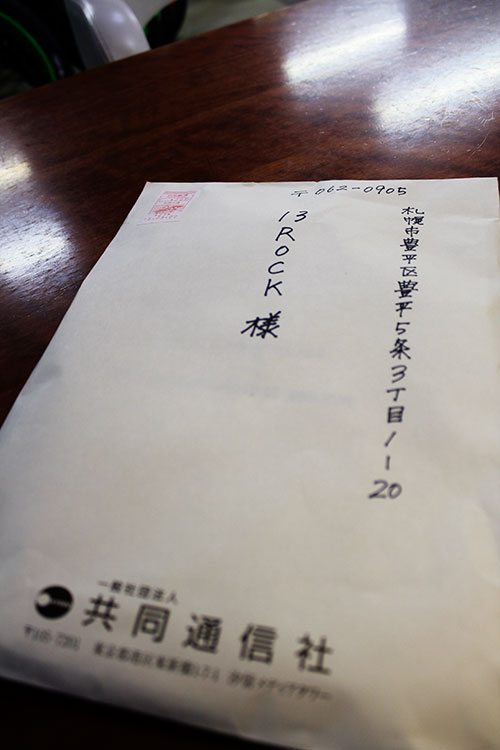 〒062-0905
札幌市豊平区豊平5条3丁目1-20
13ROCK様
一般社団法人
共同通信社